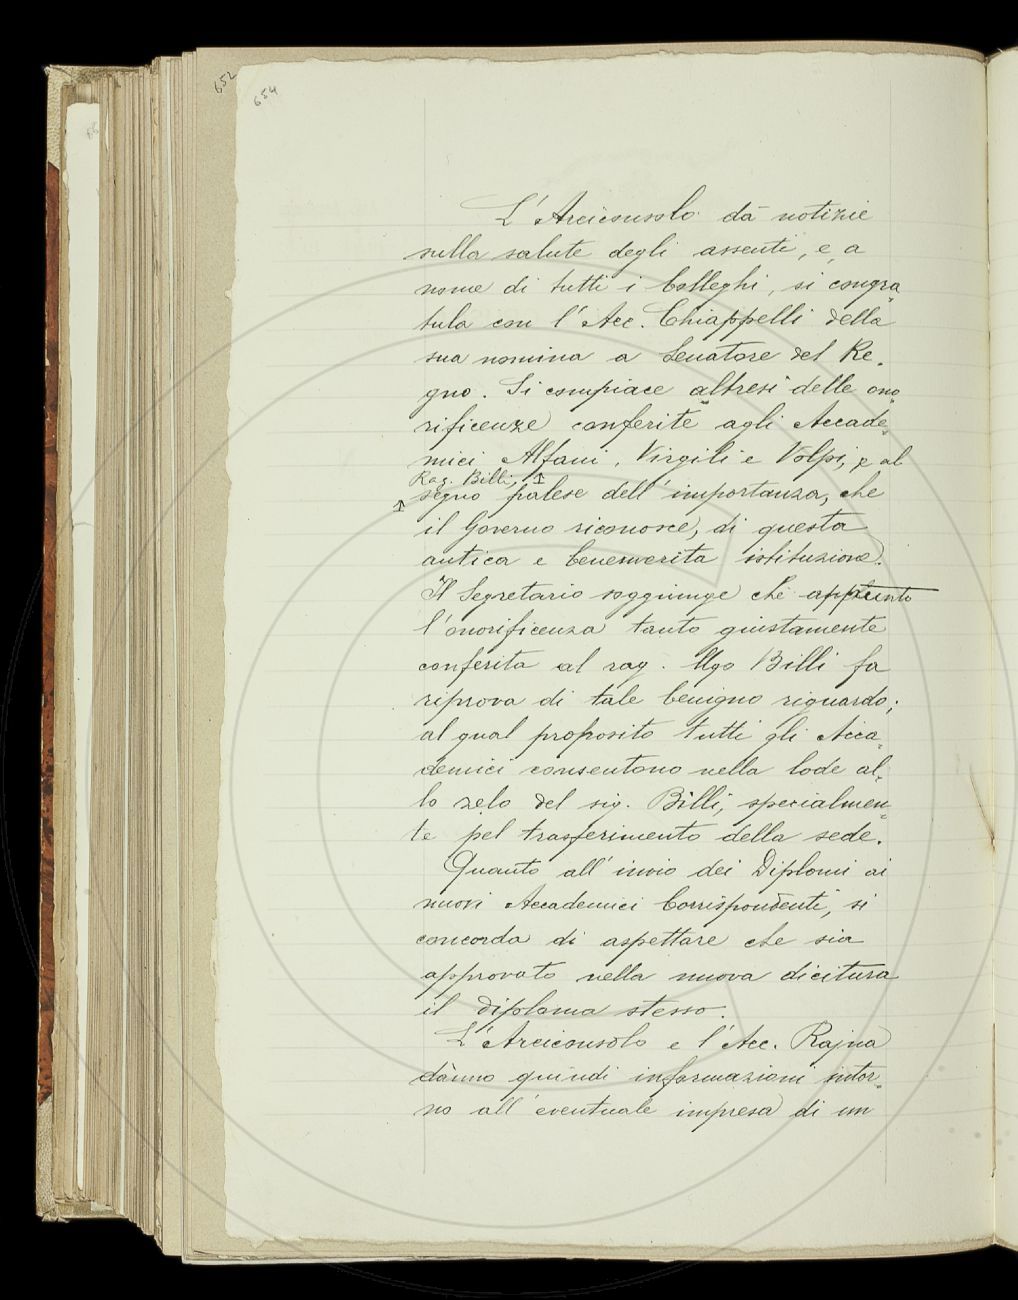 652
654
L'Arciconsolo dà notizie
sulla salute degli assenti, e, a
nome di tutti i Colleghi, si congra„
tula con l'Acc. Chiappelli della
sua nomina a Senatore del Re„
gno. Si compiace altresì delle ono„
rificenze conferite agli Accade„
mici Alfani, Virgili e Volpi, e al
Rag. Billi,
segno palese dell'importanza, che
il Governo riconosce, di questa
antica e benemerita istituzione.
Il Segretario soggiunge che appunto
l'onorificenza tanto giustamente
conferita al rag. Ugo Billi fa
riprova di tale benigno riguardo;
al qual proposito tutti gli Acca„
demici consentono nella lode al„
lo zelo del sig. Billi, specialmen„
te pel trasferimento della sede.
Quanto all'invio dei Diplomi ai
nuovi Accademici Corrispondenti, si
concorda di aspettare che sia
approvato nella nuova dicitura
il diploma stesso.
L'Arciconsolo e l'Acc. Rajna
dànno quindi informazioni intor„
no all'eventuale impresa di un